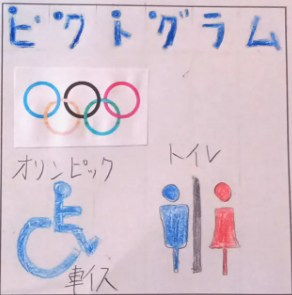 ピクトグラム
オリンピック
トイレ
車イス